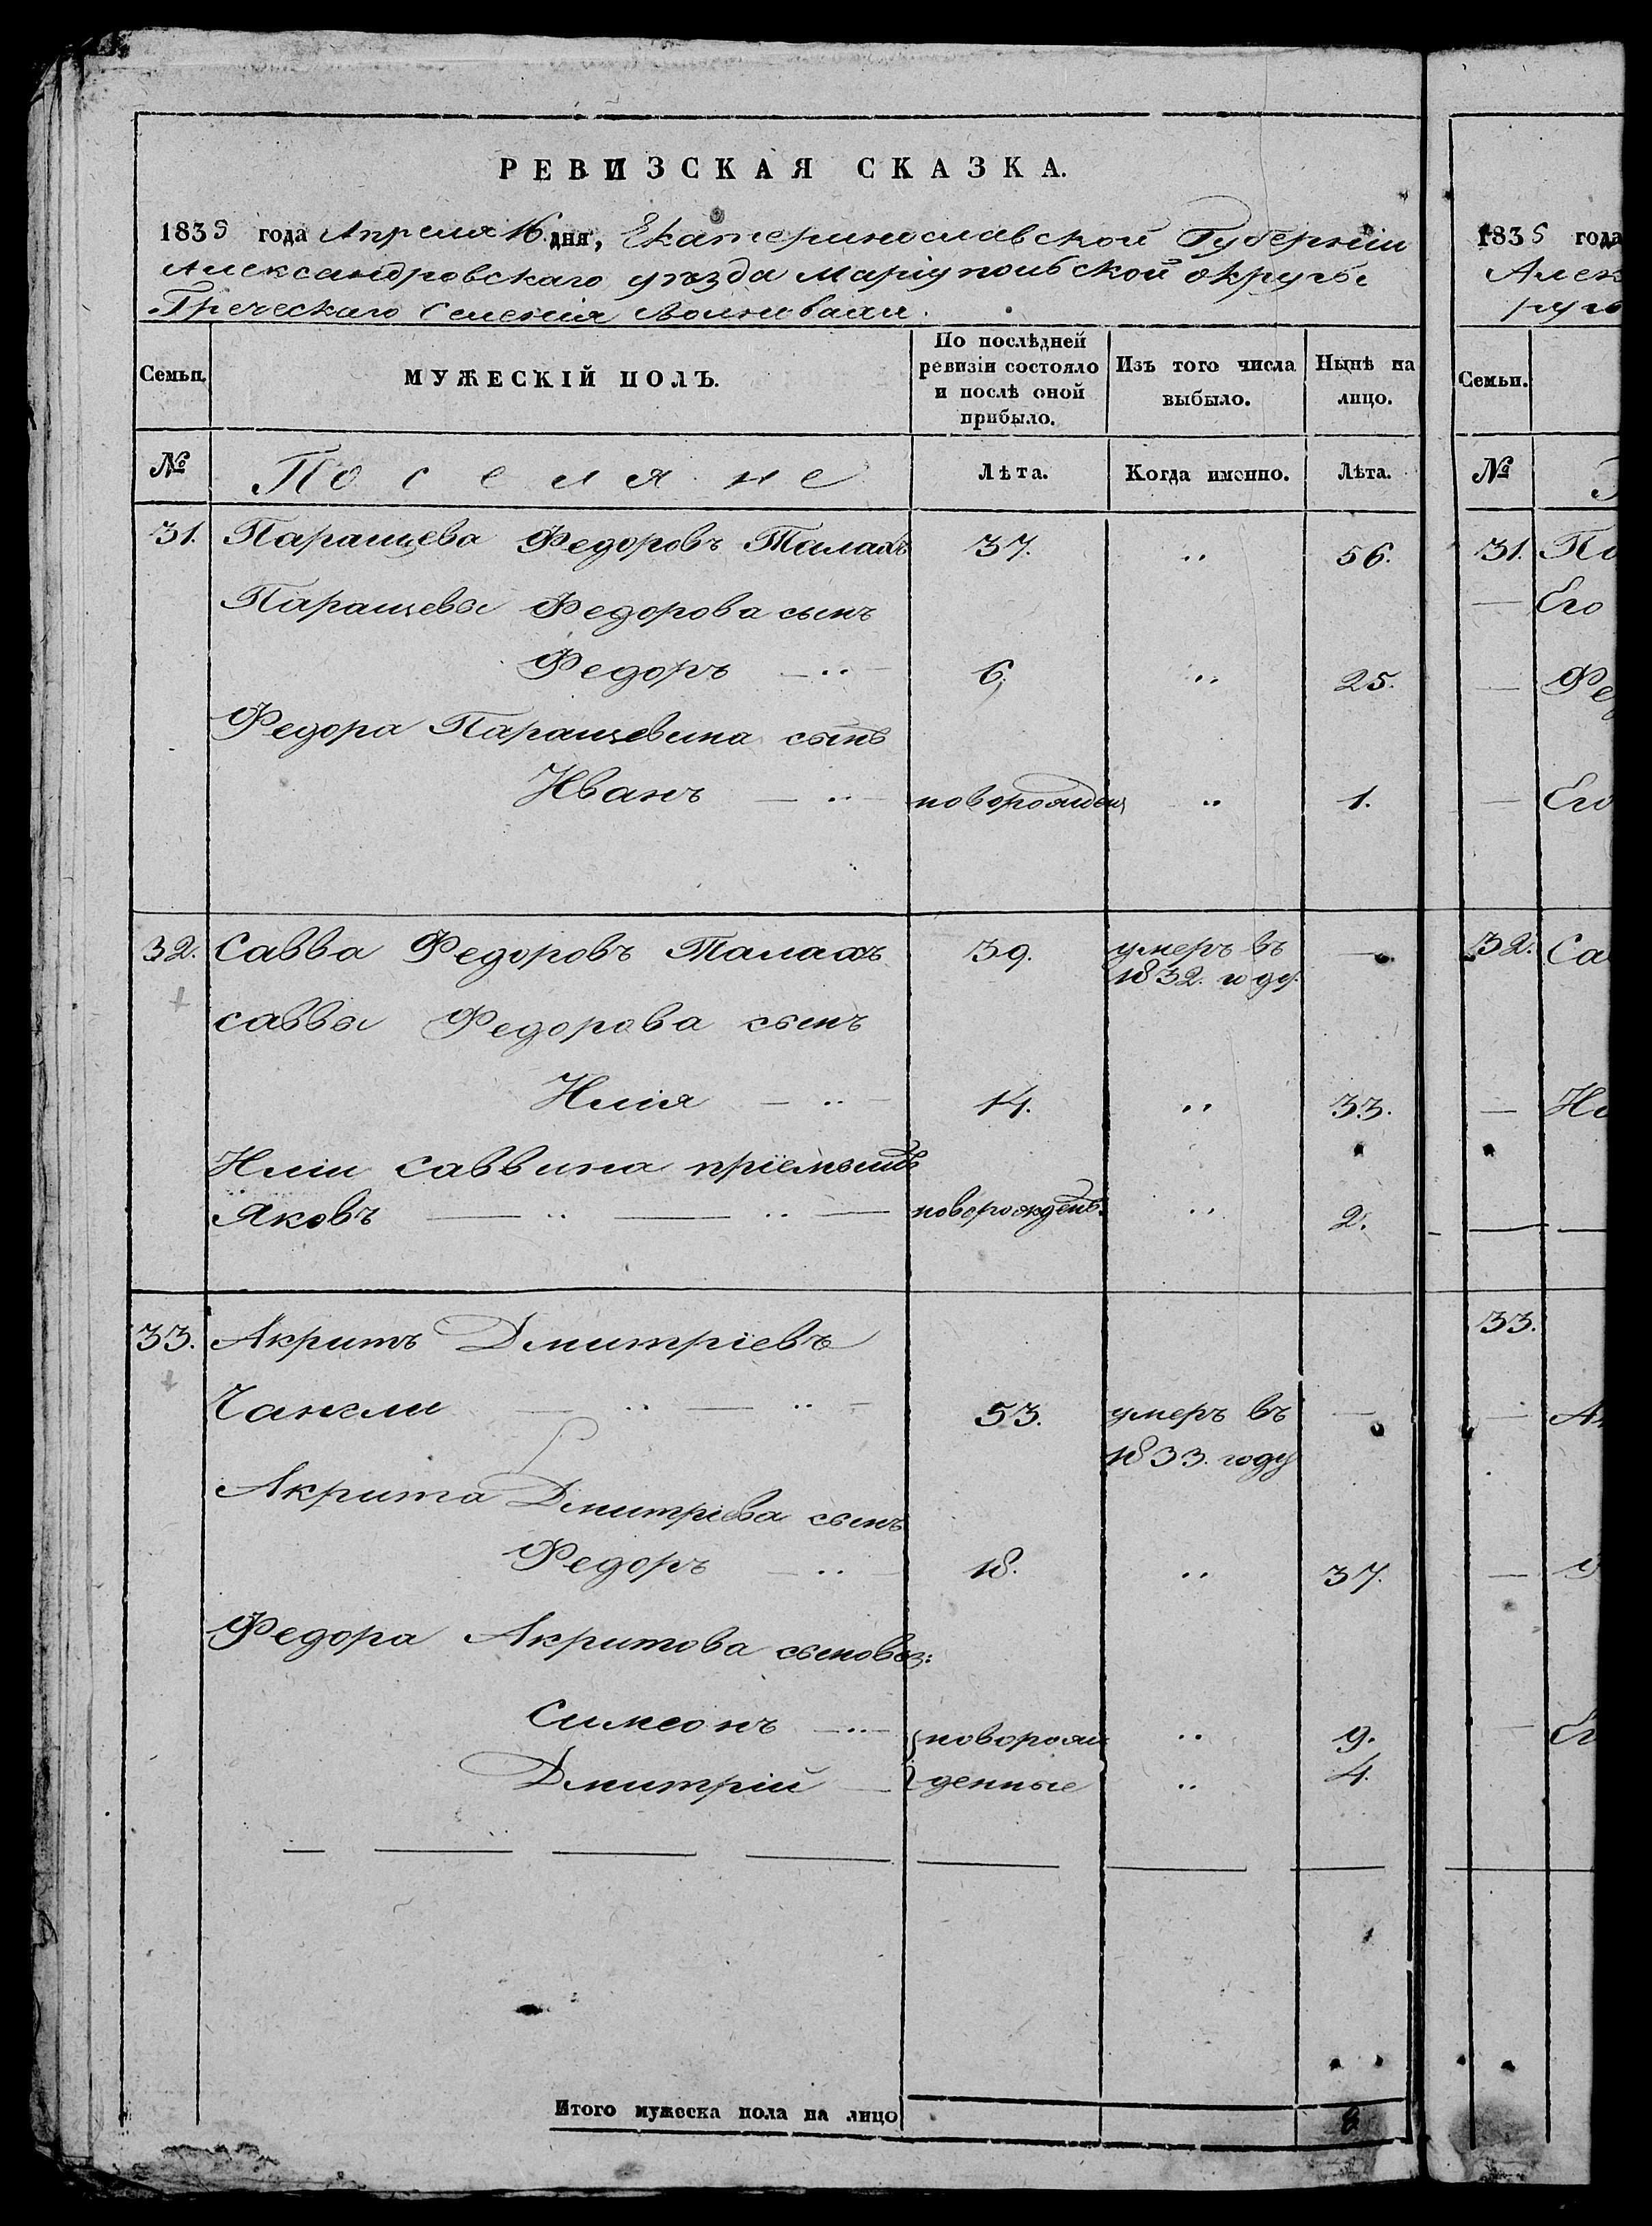 РЕВИЗСКАЯ СКАЗКА.
1835 года Апреля 16 дня, Екатеринославской Губерніи
Александровскаго уѣзда Маріупольской округѣ
Греческаго Селенія Волновахи.
Семьи. МУЖЕСКІЙ ПОЛЪ. По послѣдней ревизіи состояло и послѣ оной прибыло. Изъ того числа выбыло. Нынѣ на лицо.
№ Поселяне Лѣта. Когда именно. Лѣта.
31. Паращева Федоровъ Талахъ 37. " 56.
Паращевы Федорова сынъ
Федоръ — " — 6. " 25.
Федора Паращевина сынъ
Иванъ — " — новорожден " 1.
32. Савва Федоровъ Талахъ 39. умеръ въ 1832. году. —
саввы Федорова сынъ
Илія — " — 14. " 33.
Иліи Саввина пріемышъ
Яковъ — " — " — новорожденъ. " 2.
33. Акритъ Дмитріевъ
Чакели — " — " — 53. умеръ въ —
1833. году
Акрита Дмитріева сынъ
Федоръ — " — 18. " 37.
Федора Акритова сыновья:
Симеонъ — " — новорож " 9.
Дмитрій — денные " 4.
Итого мужеска пола на лицо 8
1835 года
Алек
руги
Семьи.
№
31. Па
— Его
— Фед
— Его
32. Са
— Ил
33.
— Ак